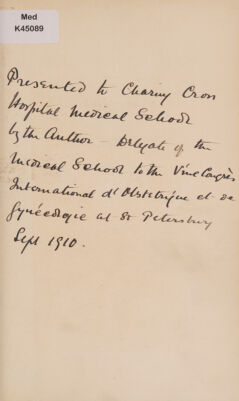 Med
K45089
Presented to Charing Cross
Hospital Medical School
by the Author – Delegate of the
Medical School to the Vme Congrès
International d'Obstétrique et de
Gynécologie at St Petersburg
Sept 1910.